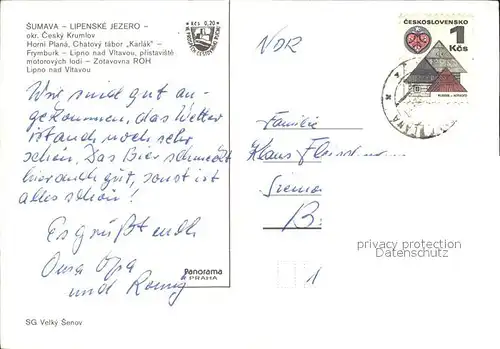 ŠUMAVA – LIPENSKÉ JEZERO –
okr. Český Krumlov
Horní Planá, Chatový tábor „Karlák" –
Frymburk – Lipno nad Vltavou, přístaviště
motorových lodí – Zotavovna ROH
Lipno nad Vltavou
Kčs 0,20
Wir sind gut an-
gekommen, das Wetter
ist auch noch sehr
schön. Das Bier schmeckt
hier auch gut, sonst ist
alles schön!
Es grüßt euch
Oma Opa
und Ronny
SG Velký Šenov
panorama
PRAHA
NDR
ČESKOSLOVENSKO
1
Kčs
Familie
Klaus
B
1
privacy protection
Datenschutz